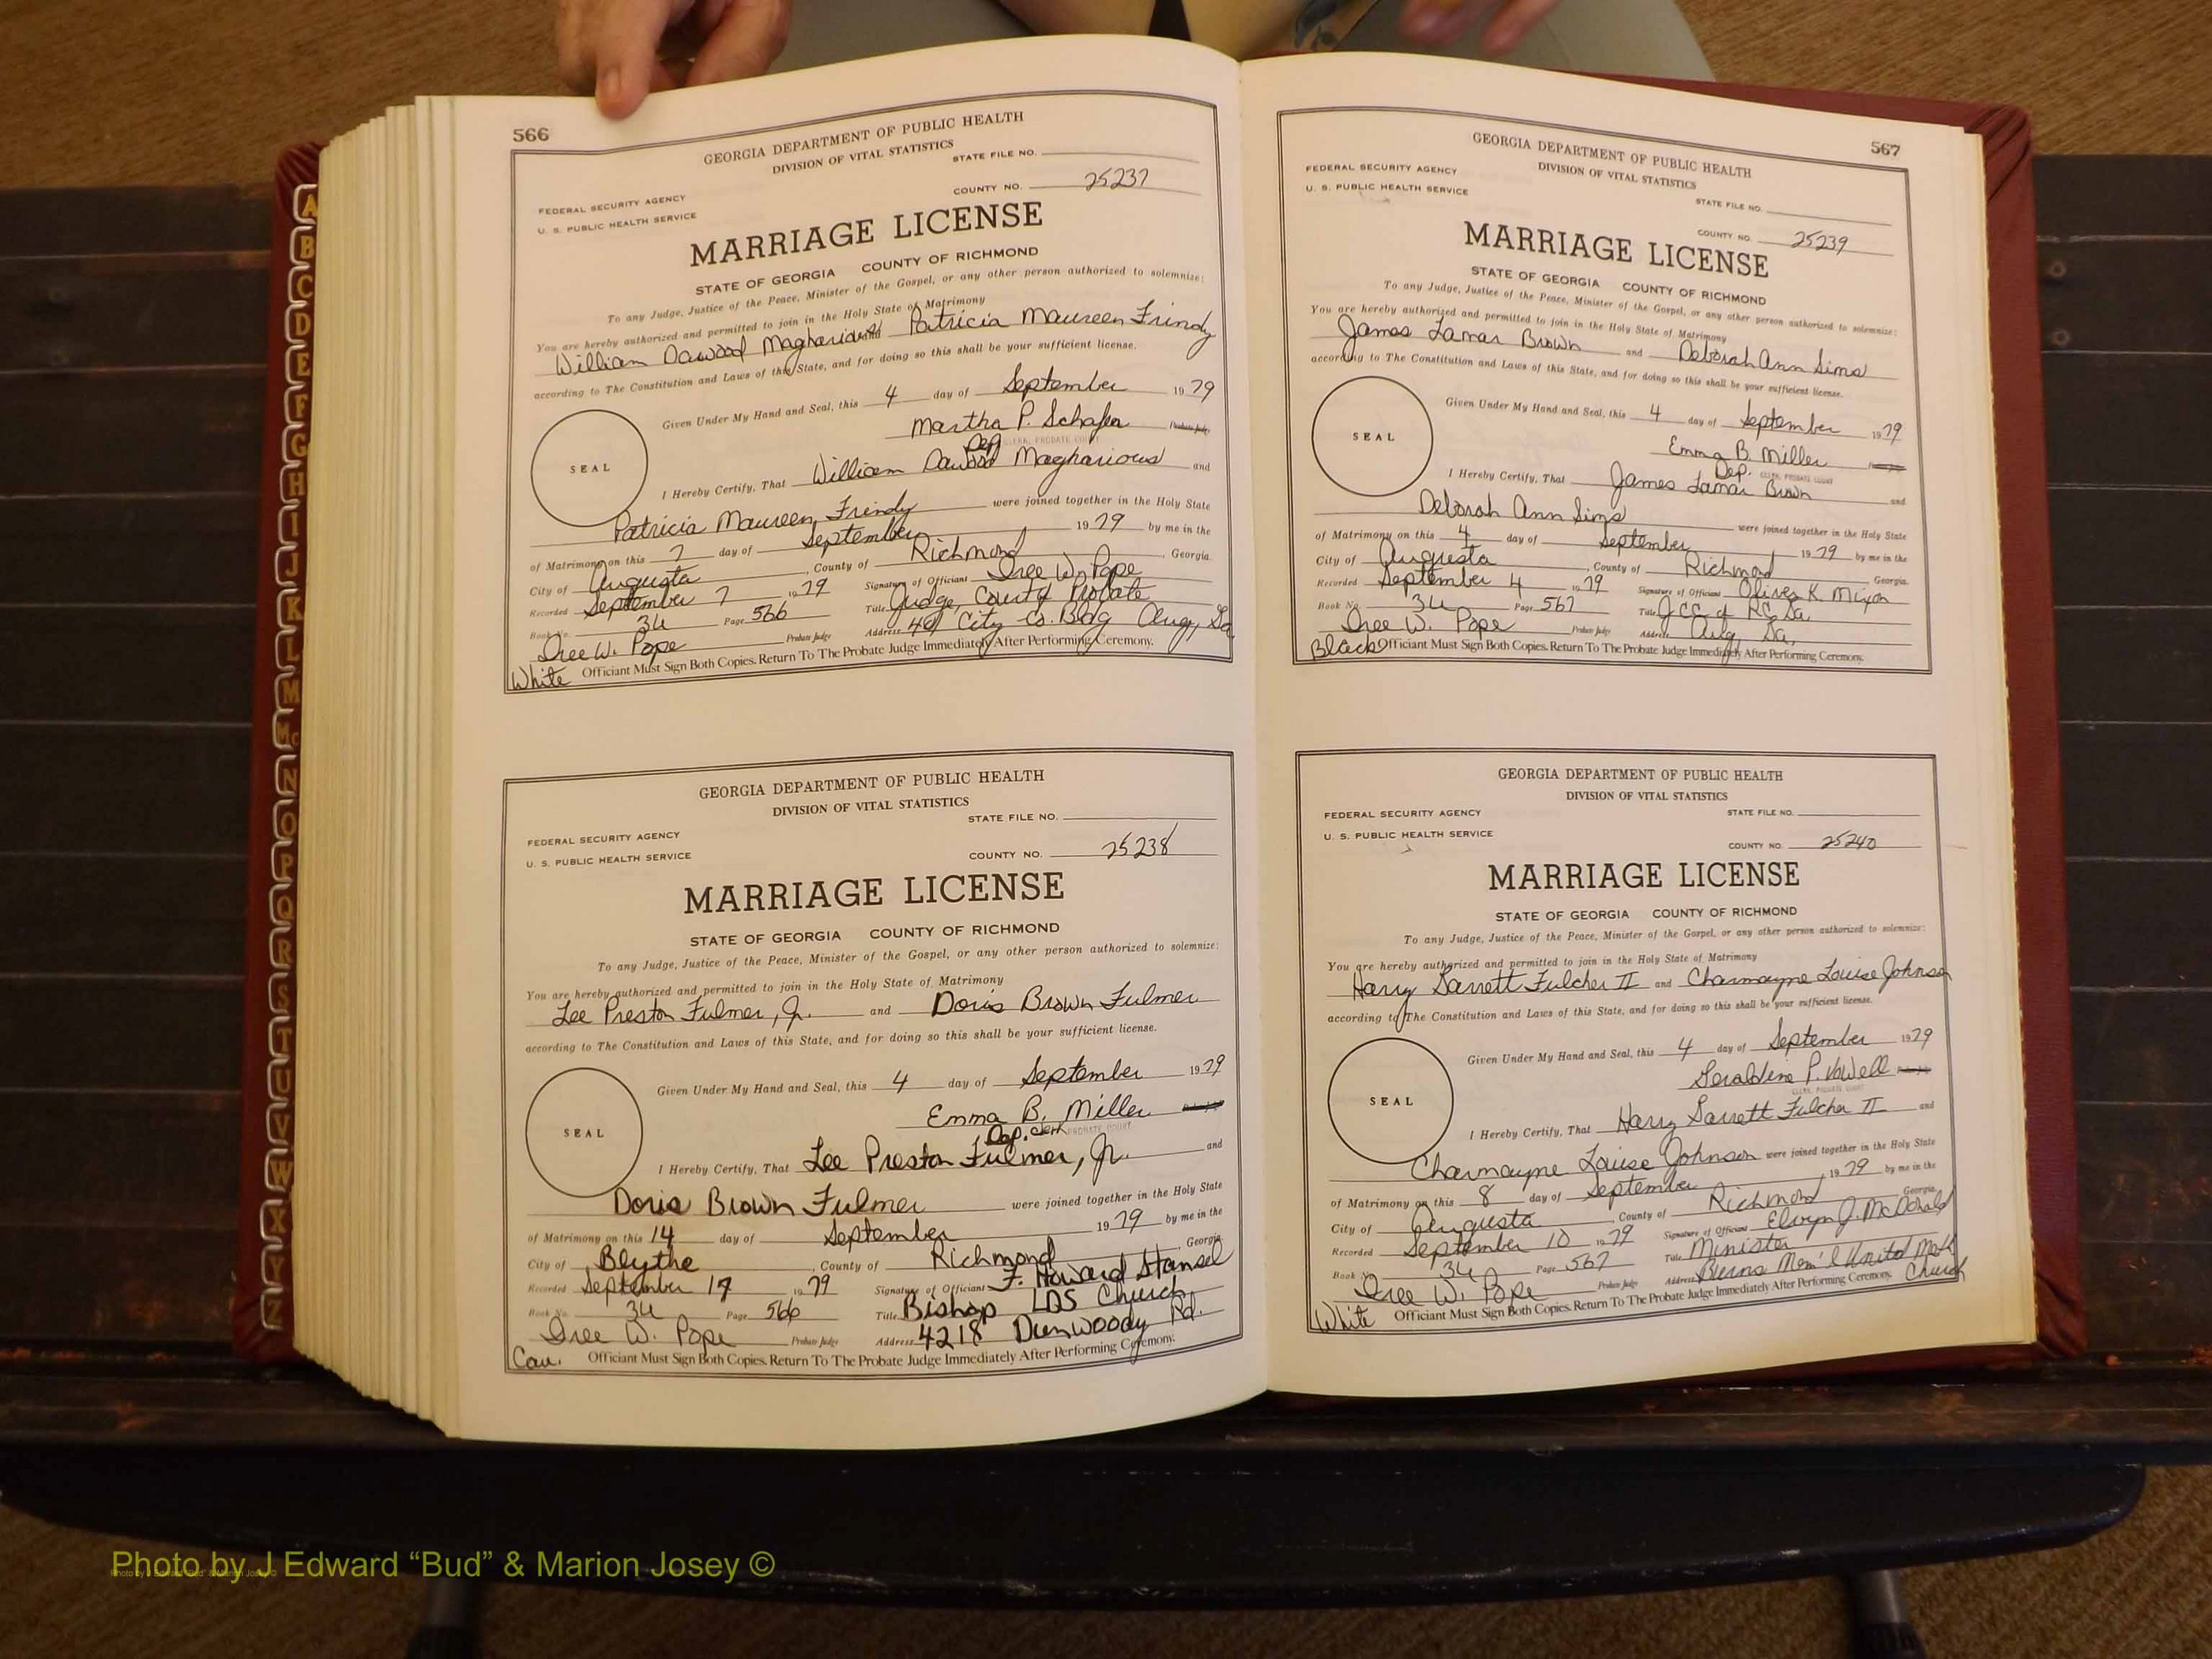 566
GEORGIA DEPARTMENT OF PUBLIC HEALTH
DIVISION OF VITAL STATISTICS
STATE FILE NO.
COUNTY NO. 25237
FEDERAL SECURITY AGENCY
U. S. PUBLIC HEALTH SERVICE
MARRIAGE LICENSE
STATE OF GEORGIA COUNTY OF RICHMOND
To any Judge, Justice of the Peace, Minister of the Gospel, or any other person authorized to solemnize:
You are hereby authorized and permitted to join in the Holy State of Matrimony
William Dawood Magharious and Patricia Maureen Frindy
according to The Constitution and Laws of this State, and for doing so this shall be your sufficient license.
Given Under My Hand and Seal, this 4 day of September 1979
Martha P. Schafer Probate Judge
Dep CLERK, PROBATE COURT
SEAL
I Hereby Certify, That William Dawood Magharious and
Patricia Maureen Frindy were joined together in the Holy State
of Matrimony on this 7 day of September 1979 by me in the
City of Augusta, County of Richmond, Georgia.
Recorded September 7 1979 Signature of Officiant Iree W. Pope
Book No. 34 Page 566 Title Judge, County Probate
Iree W. Pope Probate Judge Address 401 City-Co. Bldg Aug, Ga
White Officiant Must Sign Both Copies. Return To The Probate Judge Immediately After Performing Ceremony.
GEORGIA DEPARTMENT OF PUBLIC HEALTH
DIVISION OF VITAL STATISTICS
STATE FILE NO.
FEDERAL SECURITY AGENCY
U. S. PUBLIC HEALTH SERVICE
COUNTY NO. 25238
MARRIAGE LICENSE
STATE OF GEORGIA COUNTY OF RICHMOND
To any Judge, Justice of the Peace, Minister of the Gospel, or any other person authorized to solemnize:
You are hereby authorized and permitted to join in the Holy State of Matrimony
Lee Preston Fulmer, Jr. and Doris Brown Fulmer
according to The Constitution and Laws of this State, and for doing so this shall be your sufficient license.
Given Under My Hand and Seal, this 4 day of September 1979
Emma B. Miller
Dep. Clerk PROBATE COURT
SEAL
I Hereby Certify, That Lee Preston Fulmer, Jr. and
Doris Brown Fulmer were joined together in the Holy State
of Matrimony on this 14 day of September 1979 by me in the
City of Blythe, County of Richmond, Georgia.
Recorded September 17 1979 Signature of Officiant F. Howard Stansel
Book No. 34 Page 566 Title Bishop LDS Church
Iree W. Pope Probate Judge Address 4218 Dunwoody Rd.
Cau. Officiant Must Sign Both Copies. Return To The Probate Judge Immediately After Performing Ceremony.
567
GEORGIA DEPARTMENT OF PUBLIC HEALTH
DIVISION OF VITAL STATISTICS
FEDERAL SECURITY AGENCY
U. S. PUBLIC HEALTH SERVICE
STATE FILE NO.
COUNTY NO. 25239
MARRIAGE LICENSE
STATE OF GEORGIA COUNTY OF RICHMOND
To any Judge, Justice of the Peace, Minister of the Gospel, or any other person authorized to solemnize:
You are hereby authorized and permitted to join in the Holy State of Matrimony
James Lamar Brown and Deborah Ann Sims
according to The Constitution and Laws of this State, and for doing so this shall be your sufficient license.
Given Under My Hand and Seal, this 4 day of September 1979
Emma B. Miller
Dep. CLERK, PROBATE COURT
SEAL
I Hereby Certify, That James Lamar Brown and
Deborah Ann Sims were joined together in the Holy State
of Matrimony on this 4 day of September 1979 by me in the
City of Augusta, County of Richmond Georgia.
Recorded September 4 1979 Signature of Officiant Oliver K. Mixon
Book No. 34 Page 567 Title JCC of RC Ga.
Iree W. Pope Probate Judge Address Aug, Ga.
Black Officiant Must Sign Both Copies. Return To The Probate Judge Immediately After Performing Ceremony.
GEORGIA DEPARTMENT OF PUBLIC HEALTH
DIVISION OF VITAL STATISTICS
FEDERAL SECURITY AGENCY
STATE FILE NO.
U. S. PUBLIC HEALTH SERVICE
COUNTY NO. 25240
MARRIAGE LICENSE
STATE OF GEORGIA COUNTY OF RICHMOND
To any Judge, Justice of the Peace, Minister of the Gospel, or any other person authorized to solemnize:
You are hereby authorized and permitted to join in the Holy State of Matrimony
Harry Garrett Fulcher II and Charmayne Louise Johnson
according to The Constitution and Laws of this State, and for doing so this shall be your sufficient license.
Given Under My Hand and Seal, this 4 day of September 1979
Geraldine P. Vowell
CLERK, PROBATE COURT
SEAL
I Hereby Certify, That Harry Garrett Fulcher II and
Charmayne Louise Johnson were joined together in the Holy State
of Matrimony on this 8 day of September 1979 by me in the
City of Augusta, County of Richmond Georgia.
Recorded September 10 1979 Signature of Officiant Elvyn J. McDonald
Book No. 34 Page 567 Title Minister
Iree W. Pope Probate Judge Address Burns Mem'l United Meth Church
White Officiant Must Sign Both Copies. Return To The Probate Judge Immediately After Performing Ceremony.
A
B
C
D
E
F
G
H
I
J
K
L
M
Mc
N
O
P
Q
R
S
T
U
V
W
X
Y
Z
Photo by J Edward “Bud” & Marion Josey ©
Photo by J Edward “Bud” & Marion Josey ©